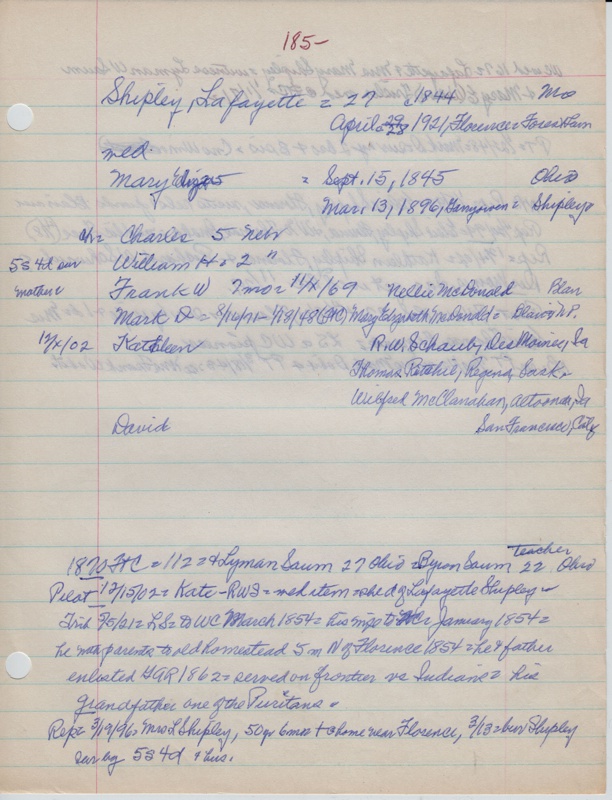 185-
Shipley, Lafayette = 27 c1844 Mo
April 29 28 1921, Florence = Forest Lawn
med.
Mary = Sept. 15, 1845 Ohio
Mar. 13, 1896, = Shipley
ch = Charles 5 Nebr
5s 4d sur William H. 2 "
mother Frank W 7 mos 11/x/69 Nellie McDonald Blair
Mark D = 8/14/71- Mary Elizabeth McDonald = Blair
12/x/02 Kathleen R.W. Schaub, Des Moines, Ia
Thomas Ritchie, Regina, Sask.
Wilfred McClanahan, Altoona, Ia
David San Francisco, Calif
1870 FHC = 112 = & Lyman Saum 27 Ohio = Byron Saum Teacher 22 Ohio
Pilot 12/15/02 = Kate - RWS = wed item = she d of Lafayette Shipley
Trib 5/5/21 = LS = to WC March 1854 = his mps to January 1854 =
he with parents to old homestead 5m N of Florence 1854 = he & father
enlisted GAR 1862 = served on frontier vs Indians = his
grandfather one of the Puritans.
Rep = 3/19/96 = Mrs L Shipley, 50y 6mos + @ home near Florence, 3/13 = bur Shipley
sur by 5s 4d & hus.